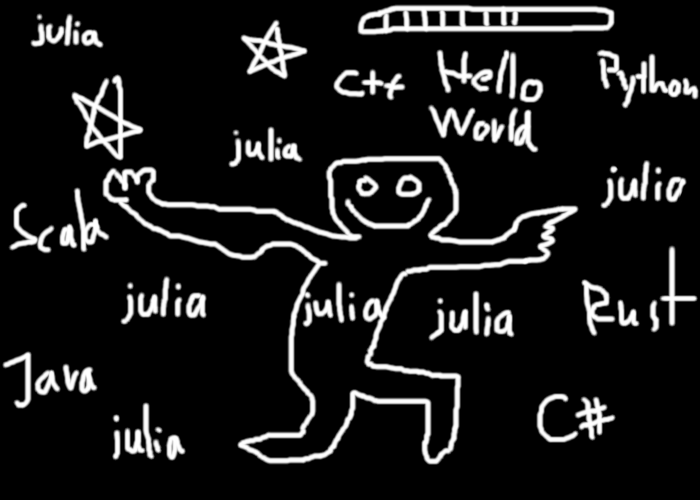 julia
C++
Hello
World
Python
julia
julia
Scala
julia
julia
julia
Rust
Java
julia
C#